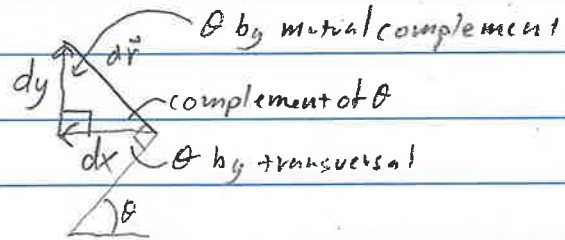 θ by mutual complement
dr⃗
dy
complement of θ
dx
θ by transversal
θ